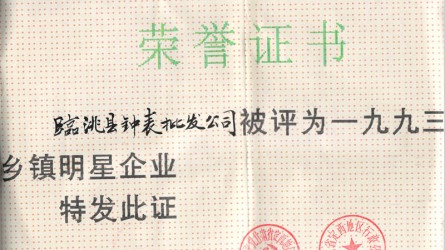 荣誉证书
临洮县钟表批发公司被评为一九九三
乡镇明星企业
特发此证